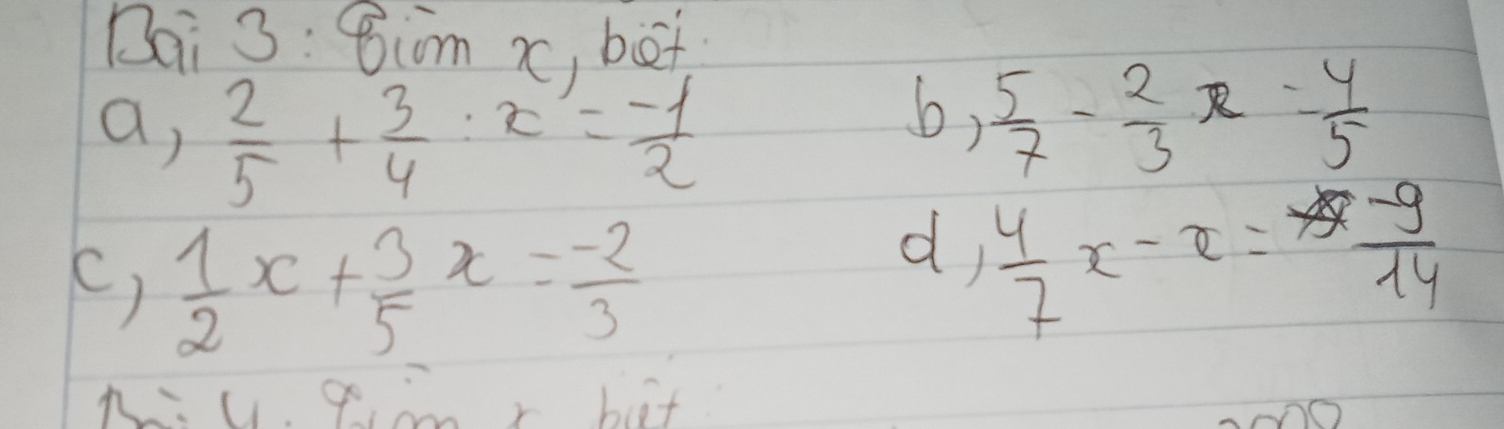 Bài 3: Tìm x, biết:
a, 2/5 + 3/4 : x = -1/2
b, 5/7 - 2/3 x = 4/5
c, 1/2 x + 3/5 x = -2/3
d, 4/7 x - x = -9/14
Bài 4. Tìm x biết